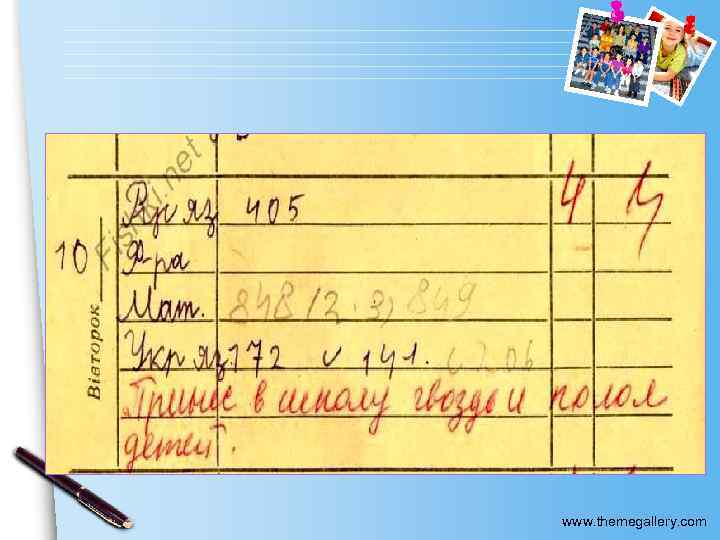 Fishki.net
Вівторок
10
Рус яз 405 4
Ф-ра
Мат. 848 (2,3) 849
Укр яз 172 и 141. и 206
Принес в школу гвозди и колол
детей.
www.themegallery.com